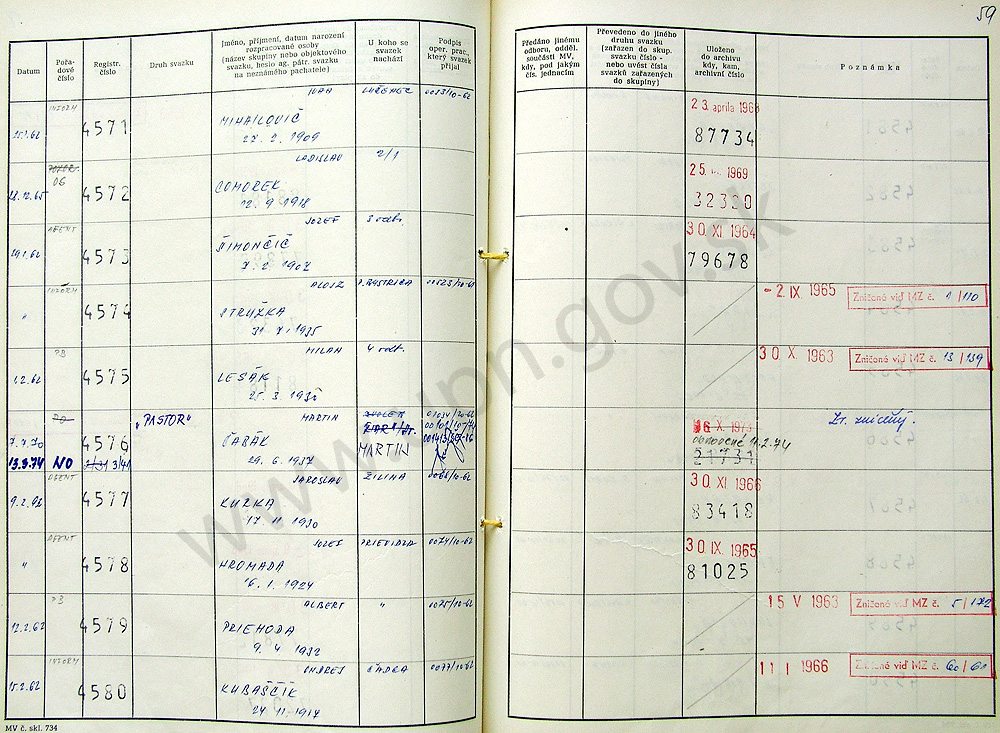 59
Datum
Pořa-
dové
číslo
Registr.
číslo
Druh svazku
Jméno, příjmení, datum narození
rozpracované osoby
(název skupiny nebo objektového
svazku, heslo ag. pátr. svazku
na neznámého pachatele)
U koho se
svazek
nachází
Podpis
oper. prac.,
který svazek
přijal
Předáno jinému
odboru, odděl.
součásti MV,
kdy, pod jakým
čís. jednacím
Převedeno do jiného
druhu svazku
(zařazen do skup.
svazku číslo -
nebo uvést čísla
svazků zařazených
do skupiny)
Uloženo
do archivu
kdy, kam,
archivní číslo
Poznámka
4571
IVAN
MIHAILOVIČ
27. 2. 1909
LUČENEC
0023/10-62
23. apríla 1968
87734
22.12.65
OG
4572
LADISLAV
COMOREK
12. 9 1918
2/1
1969
32330
AGENT
29.1.62
4573
JOZEF
ŠIMONČIČ
7. 2 1907
3 odb.
30 XI. 1964
79678
INFORM
"
4574
ALOJZ
STRUŽKA
1935
P. BYSTRICA
- 2. IX. 1965
Zničené viď MZ č. /110
PB
1.2.62
4575
MILAN
LESÁK
25. 3
4 odb.
30 X. 1963
Zničené viď MZ č. 13/139
7.7.70
13.9.74
NO
4576
3/41
„PASTOR"
MARTIN
ČABÁK
29. 6. 1937
MARTIN
X. 1973
obnovené 11.2.74
21731
Zv. zničený.
AGENT
9.2.62
4577
JAROSLAV
KUZKA
17 11 1930
ŽILINA
0066/10-62
30 XI 1966
83418
AGENT
"
4578
JOZEF
HROMADA
6. 1. 1924
PRIEVIDZA
0074/10-62
30 IX. 1965
81025
PB
12.2.62
4579
ALBERT
PRIEHODA
9. 4 1932
"
0075/10-62
15 V 1963
Zničené viď MZ č. 5/172
INFORM
15.2.62
4580
ONDREJ
KUBAŠČÍK
24 11 1917
ČADCA
0077/10-62
11 I 1966
Zničené viď MZ č. 60/61
MV č. skl. 734
www.upn.gov.sk